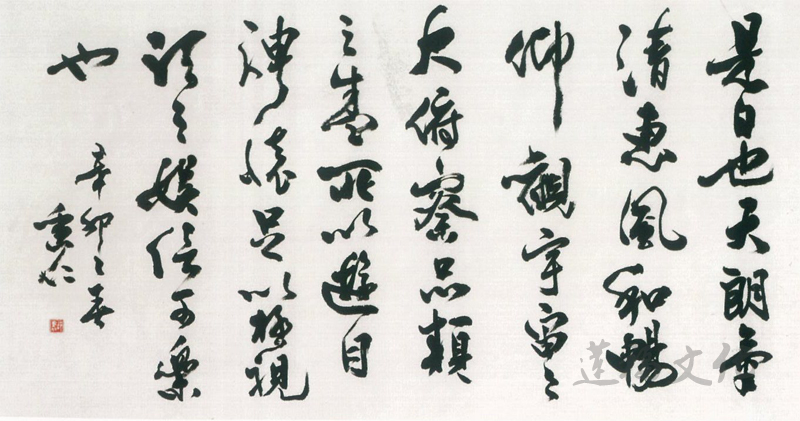 是日也天朗氣
清惠風和暢
仰觀宇宙之
大俯察品類
之盛所以遊目
騁懷足以極視
聽之娛信可樂
也
辛卯之春
仁